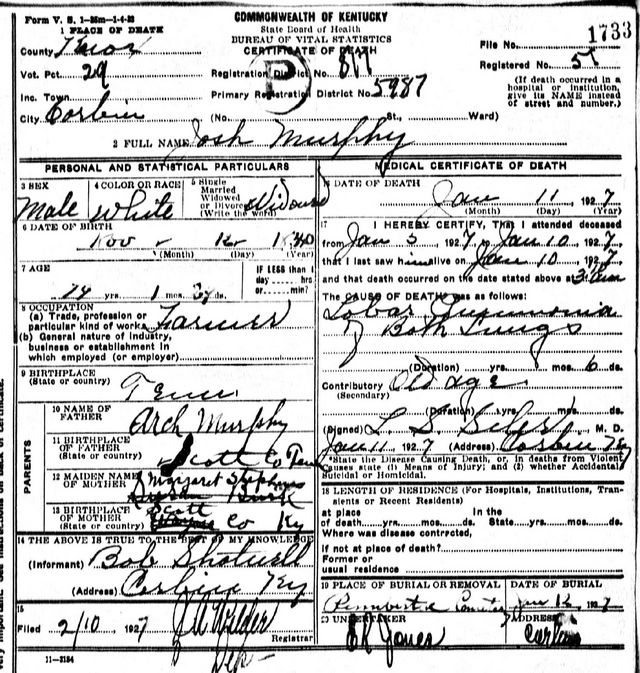 Form V. S. 1-35m-1-4-26
COMMONWEALTH OF KENTUCKY
State Board of Health
BUREAU OF VITAL STATISTICS
CERTIFICATE OF DEATH
File No. 1733
Registered No. 57
(If death occurred in a hospital or institution, give its NAME instead of street and number.)
1 PLACE OF DEATH
County Knox
Vot. Pct. 29
Registration District No.
Inc. Town
Primary Registration District No. 5987
City Corbin (No. St., Ward)
P
2 FULL NAME Josh Murphy
PERSONAL AND STATISTICAL PARTICULARS
3 SEX
Male
4 COLOR OR RACE
White
5 Single
Married
Widowed
or Divorced
(Write the word)
Widowed
6 DATE OF BIRTH
Nov - 12
(Month) (Day) (Year)
7 AGE
yrs. 1 mos. ds.
IF LESS than 1
day hrs
or min?
8 OCCUPATION
(a) Trade, profession or
particular kind of work Farmer
(b) General nature of industry,
business or establishment in
which employed (or employer)
9 BIRTHPLACE
(State or country)
Tenn
PARENTS
10 NAME OF
FATHER
Arch Murphy
11 BIRTHPLACE
OF FATHER
(State or country)
Scott Co Tenn
12 MAIDEN NAME
OF MOTHER
Margaret Stephens
13 BIRTHPLACE
OF MOTHER
(State or country)
Scott
Co Ky
14 THE ABOVE IS TRUE TO THE BEST OF MY KNOWLEDGE
(Informant) Bob Shotwell
(Address) Corbin Ky
15
Filed 2/10 1927 Registrar
Dep-
11-3184
MEDICAL CERTIFICATE OF DEATH
16 DATE OF DEATH
Jan 11 1927
(Month) (Day) (Year)
17 I HEREBY CERTIFY, THAT I attended deceased
from Jan 5 1927, to Jan 10 1927
that I last saw him alive on Jan 10 1927
and that death occurred on the date stated above at
The CAUSE OF DEATH was as follows:
Lobar Pneumonia
of Both Lungs
(Duration) yrs. mos. 6 ds.
Contributory Old age
(Secondary)
(Duration) yrs. mos. ds.
(Signed) M. D.
Jan 11 1927 (Address) Corbin Ky
*State the Disease Causing Death, or, in deaths from Violent
Causes state (1) Means of Injury; and (2) whether Accidental,
Suicidal or Homicidal.
18 LENGTH OF RESIDENCE (For Hospitals, Institutions, Transients or Recent Residents)
at place In the
of death yrs. mos. ds. State yrs. mos. ds.
Where was disease contracted,
if not at place of death?
Former or
usual residence
19 PLACE OF BURIAL OR REMOVAL
DATE OF BURIAL
Jan 12 1927
20 UNDERTAKER
Jones
ADDRESS